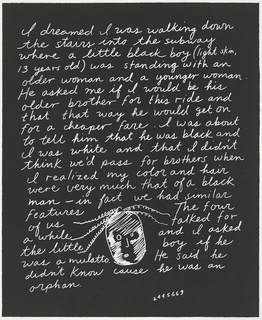 I dreamed I was walking down
the stairs into the subway
where a little black boy (light skin,
13 years old) was standing with an
older woman and a younger woman.
He asked me if I would be his
older brother for this ride and
that that way he would get on
for a cheaper fare. I was about
to tell him that he was black and
I was white and that I didn't
think we'd pass for brothers when
I realized my color and hair
were very much that of a black
man – in fact we had similar
features The four
of us talked for
a while and I asked
the little boy if he
was a mulatto. He said he
didn't know cause he was an
orphan.
2445669